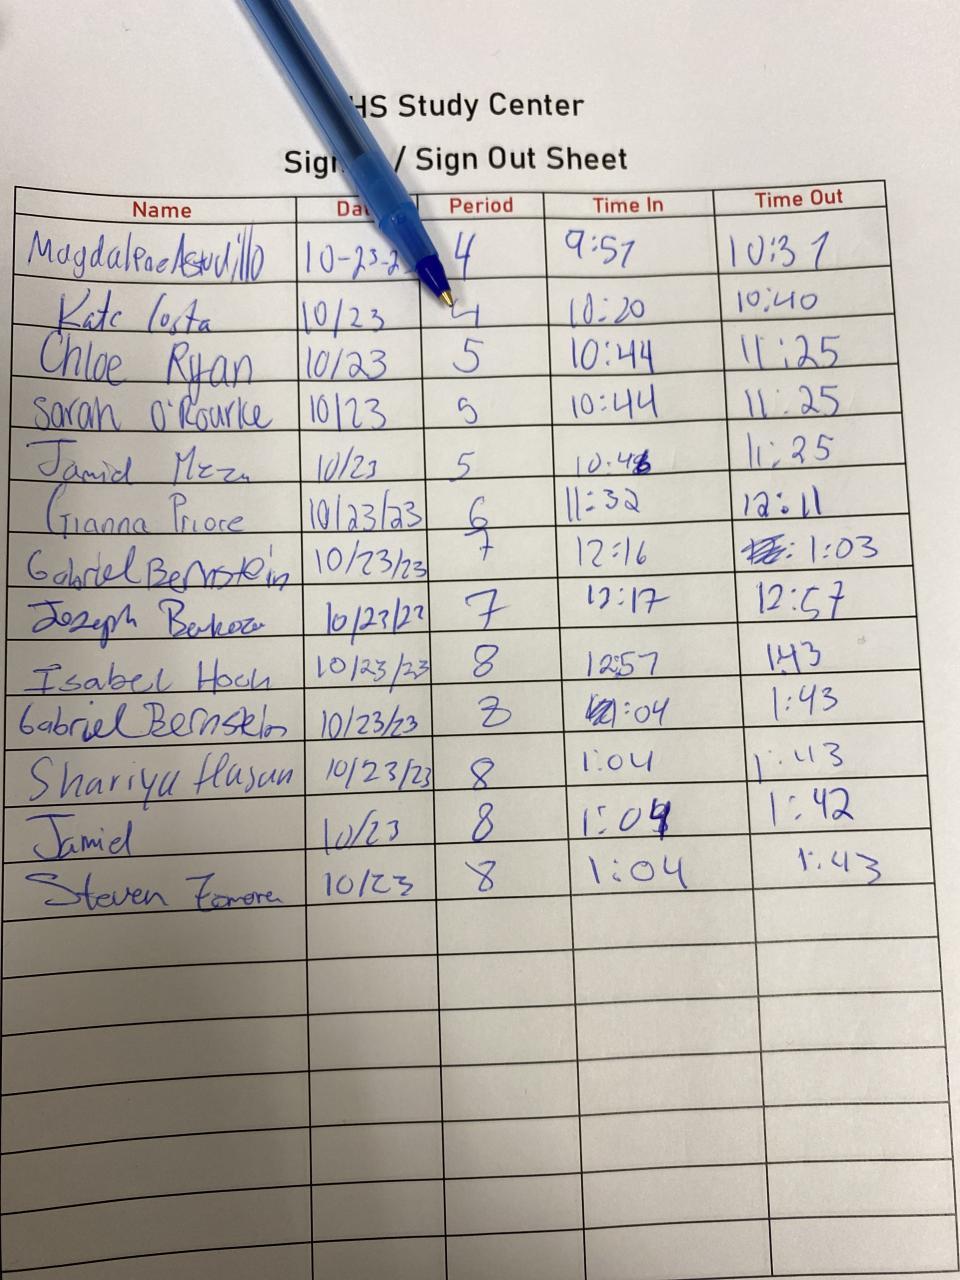 HS Study Center
Sign / Sign Out Sheet
Name Da Period Time In Time Out
Magdalene Astudillo 10-23-2 4 9:57 10:37
Kate Costa 10/23 4 10:20 10:40
Chloe Ryan 10/23 5 10:44 11:25
Sarah O'Rourke 10/23 5 10:44 11:25
Jamid 10/23 5 11:25
Gianna Priore 10/23/23 6 11:32 12:11
Gabriel Bernstein 10/23/23 7 12:16 1:03
Joseph 10/23/23 7 12:17 12:57
Isabel Hoch 10/23/23 8 12:57 1:43
Gabriel Bernstein 10/23/23 8 1:04 1:43
Shariya Hasan 10/23/23 8 1:04 1:43
Jamid 10/23 8 1:04 1:42
Steven Zamora 10/23 8 1:04 1:43